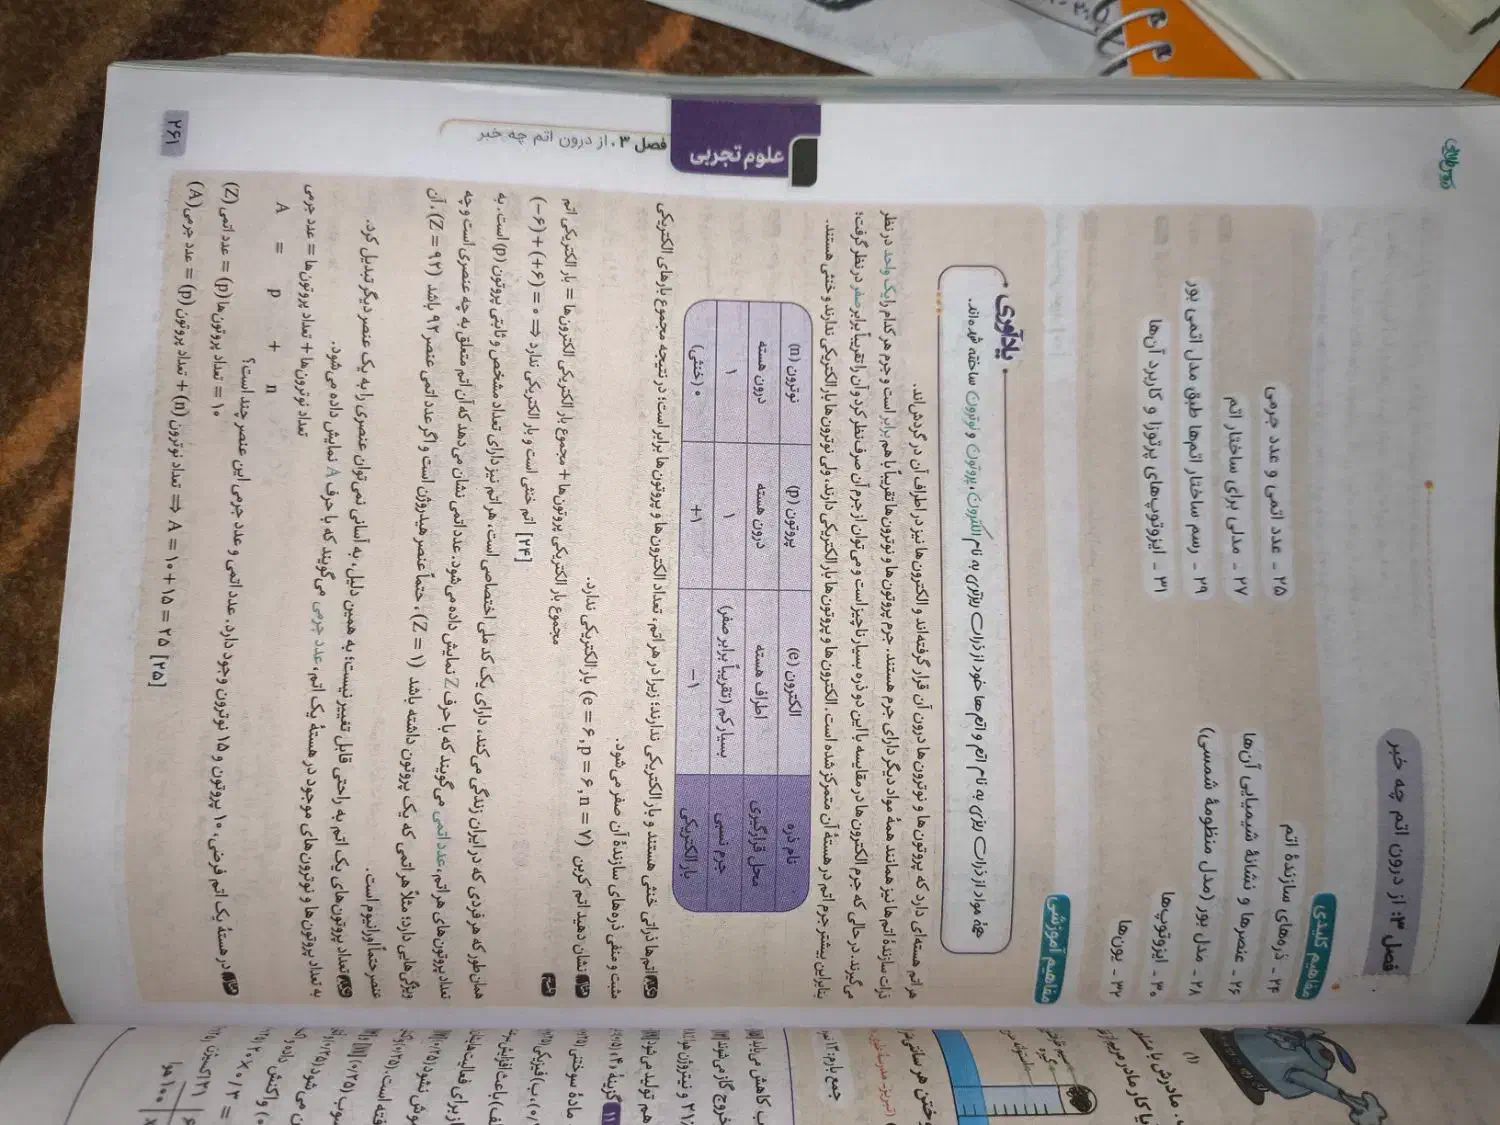 فصل ۳: از درون اتم چه خبر
مفاهیم کلیدی
۲۴ - ذره‌های سازندهٔ اتم
۲۵ - عدد اتمی و عدد جرمی
۲۶ - عنصرها و نشانهٔ شیمیایی آن‌ها
۲۷ - مدلی برای ساختار اتم
۲۸ - مدل بور (مدل منظومهٔ شمسی)
۲۹ - رسم ساختار اتم‌ها طبق مدل اتمی بور
۳۰ - ایزوتوپ‌ها
۳۱ - ایزوتوپ‌های پرتوزا و کاربرد آن‌ها
۳۲ - یون‌ها
مفاهیم آموزشی
یادآوری
همهٔ مواد از ذرات ریزی به نام اتم و اتم‌ها خود از ذرات ریزتری به نام الکترون، پروتون و نوترون ساخته شده‌اند.
هر اتم هسته‌ای دارد که پروتون‌ها و نوترون‌ها درون آن قرار گرفته‌اند و الکترون‌ها نیز در اطراف آن در گردش‌اند.
ذرات سازندهٔ اتم‌ها نیز همانند همهٔ مواد دیگر دارای جرم هستند. جرم پروتون‌ها و نوترون‌ها تقریباً با هم برابر است و جرم هر کدام را یک واحد در نظر
می‌گیرند. در حالی که جرم الکترون‌ها در مقایسه با این دو ذره بسیار ناچیز است و می‌توان از جرم آن صرف‌نظر کرد و آن را تقریباً برابر صفر در نظر گرفت؛
بنابراین بیشتر جرم اتم در هستهٔ آن متمرکز شده است. الکترون‌ها و پروتون‌ها بار الکتریکی دارند، ولی نوترون‌ها بار الکتریکی ندارند و خنثی هستند.
نام ذره الکترون (e) پروتون (p) نوترون (n)
محل قرارگیری اطراف هسته درون هسته درون هسته
جرم نسبی بسیار کم (تقریباً برابر صفر) ۱ ۱
بار الکتریکی −۱ +۱ ۰ (خنثی)
نکته اتم‌ها ذراتی خنثی هستند و بار الکتریکی ندارند؛ زیرا در هر اتم، تعداد الکترون‌ها و پروتون‌ها برابر است؛ در نتیجه مجموع بارهای الکتریکی
مثبت و منفی ذره‌های سازندهٔ آن صفر می‌شود.
مثال نشان دهید اتم کربن (e = ۶, p = ۶, n = ۷) بار الکتریکی ندارد.
پاسخ مجموع بار الکتریکی پروتون‌ها + مجموع بار الکتریکی الکترون‌ها = بار الکتریکی اتم
(−۶) + (+۶) = ۰ ⇒ اتم خنثی است و بار الکتریکی ندارد [۲۴]
همان‌طور که هر فردی که در ایران زندگی می‌کند، دارای یک کد ملی اختصاصی است، هر اتم نیز دارای تعداد مشخص و ثابتی پروتون (p) است. به
تعداد پروتون‌های هر اتم، عدد اتمی می‌گویند که با حرف Z نمایش داده می‌شود. عدد اتمی نشان می‌دهد که آن اتم متعلق به چه عنصری است و چه
ویژگی‌هایی دارد؛ مثلاً هر اتمی که یک پروتون داشته باشد (Z = ۱)، حتماً عنصر هیدروژن است و اگر عدد اتمی عنصر ۹۲ باشد (Z = ۹۲)، آن
عنصر حتماً اورانیوم است.
نکته تعداد پروتون‌های یک اتم به راحتی قابل تغییر نیست؛ به همین دلیل، به آسانی نمی‌توان عنصری را به یک عنصر دیگر تبدیل کرد.
به تعداد پروتون‌ها و نوترون‌های موجود در هستهٔ یک اتم، عدد جرمی می‌گویند که با حرف A نمایش داده می‌شود.
تعداد نوترون‌ها + تعداد پروتون‌ها = عدد جرمی
A = p + n
مثال در هستهٔ یک اتم فرضی، ۱۰ پروتون و ۱۵ نوترون وجود دارد. عدد اتمی و عدد جرمی این عنصر چند است؟
۱۰ = تعداد پروتون‌ها (p) = عدد اتمی (Z)
تعداد نوترون (n) + تعداد پروتون (p) = عدد جرمی (A) ⇒ A = ۱۰ + ۱۵ = ۲۵ [۲۵]
علوم تجربی
فصل ۳. از درون اتم چه خبر
۲۶۱